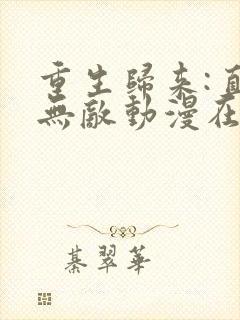 重生歸來:直
無敵動漫在
綦翠華